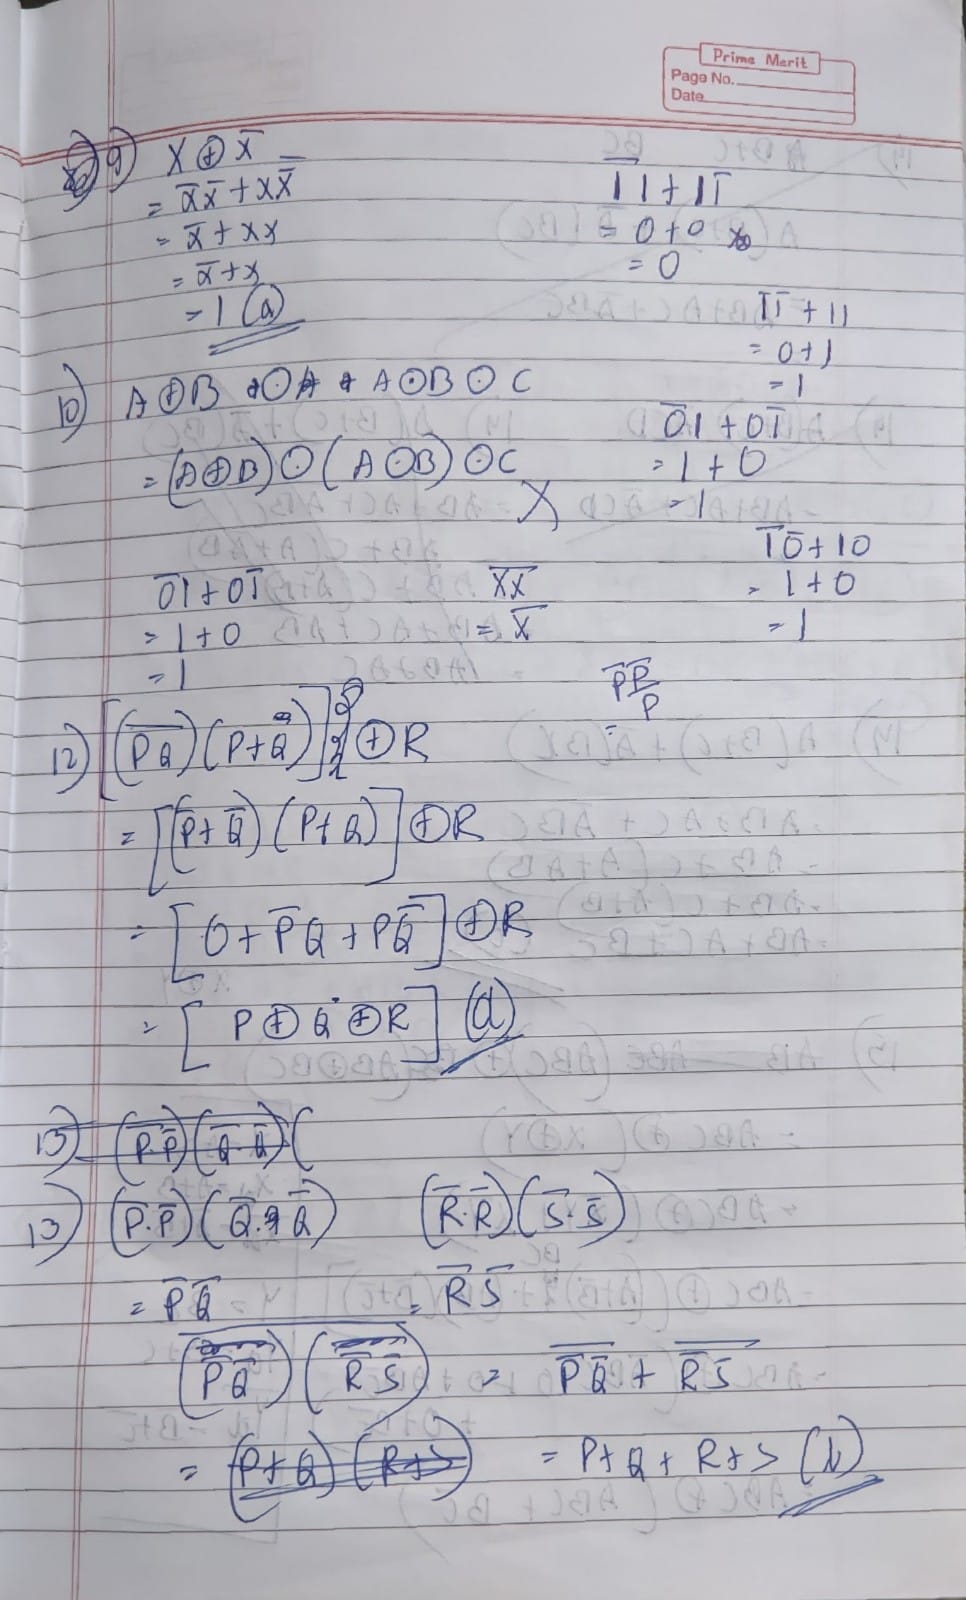 Prime Merit
Page No.
Date
9) X ⊕ X̅
= X̅X̅ + XX̿
= X̅ + XX
= X̅ + X
= 1 (a)
1̅1̅ + 11̅
= 0 + 0
= 0
1̅1̅ + 11
= 0+1
= 1
10) A ⊕ B ⊙ A + A ⊙ B ⊙ C
= (A ⊕ B) ⊙ (A ⊙ B) ⊙ C
X
0̅1 + 01̅
= 1 + 0
= 1
1̅0̅ + 10
= 1 + 0
= 1
0̅1 + 01̅
= 1 + 0
= 1
X̅X̅
= X̅
P̅P̅
P
12) [(P̅Q̅)(P+Q̿)] ⊕ R
= [(P̅+Q̅)(P+Q)] ⊕ R
= [0 + P̅Q + PQ̅] ⊕ R
= [P ⊕ Q ⊕ R] (d)
13) (P̅.P̅)(Q̅.Q̅)(
13) (P̅.P̅)(Q̅.Q̅) (R̅.R̅)(S̅.S̅)
= P̅Q̅ = R̅S̅
(P̅Q̅)(R̅S̅) = P̅Q̅ + R̅S̅
= (P+Q)(R+S) = P+Q+R+S (b)